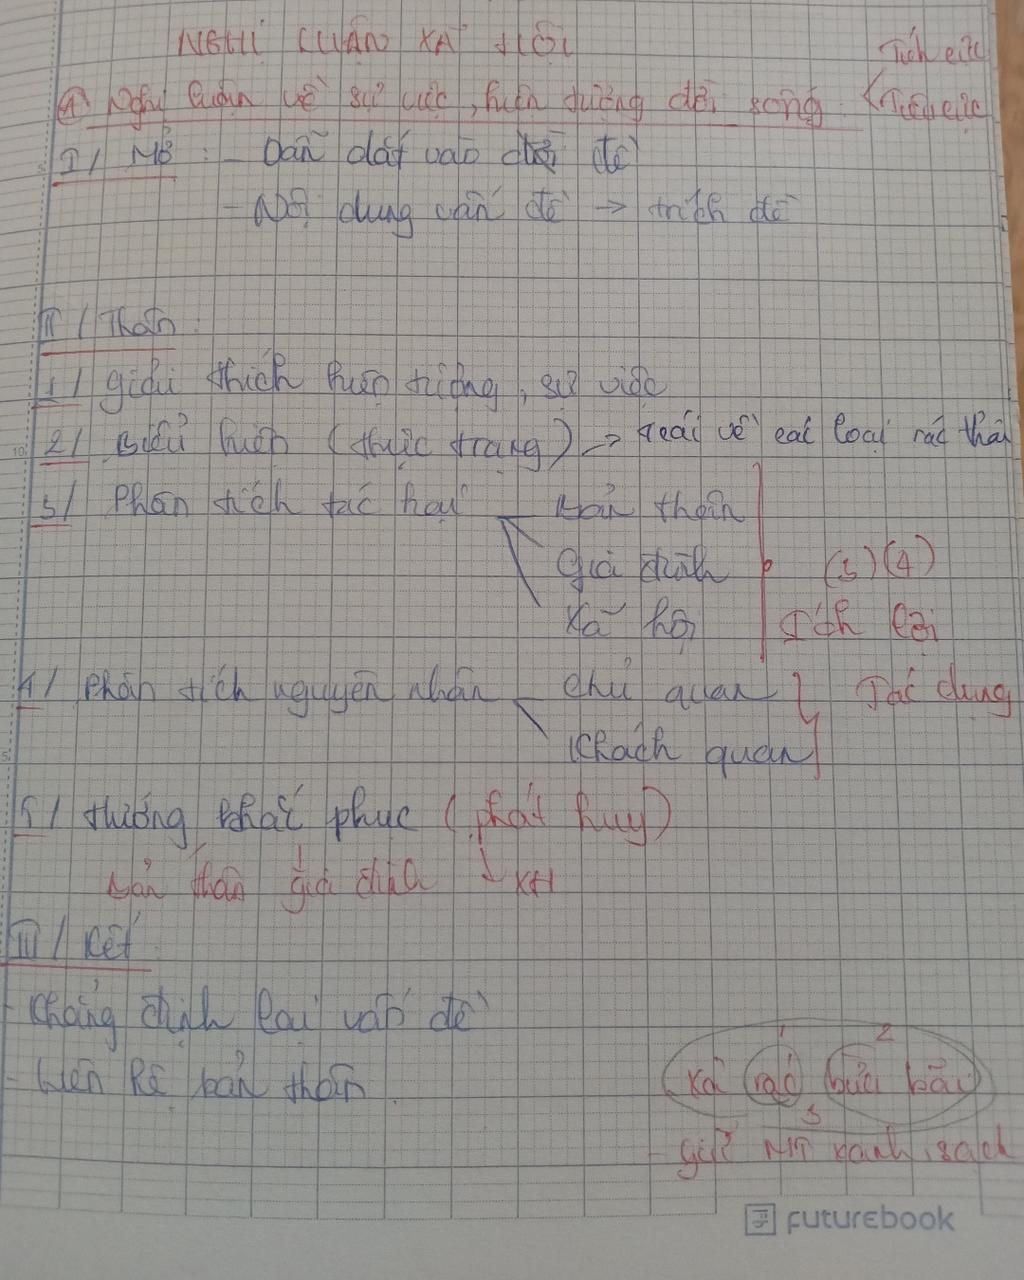 NGHỊ LUẬN XÃ HỘI
Tích cực
A Nghị luận về sự việc, hiện tượng đời sống < Tiêu cực
I/ Mở : - Dẫn dắt vào đề
- Nội dung vấn đề → trích đề
II/ Thân :
1/ giải thích hiện tượng, sự việc
2/ Biểu hiện (thực trạng) → các loại rác thải
3/ Phân tích tác hại - bản thân
gia đình (3)(4)
Xã hội Ích lợi
4/ Phân tích nguyên nhân - chủ quan } Tác dụng
Khách quan
5/ Hướng khắc phục (phát huy)
bản thân gia đình ↓ XH
III/ Kết
- Khẳng định lại vấn đề
- Liên hệ bản thân.
1 2
Xả rác bừa bãi
3
- giữ MT xanh, sạch
FUTUREBOOK